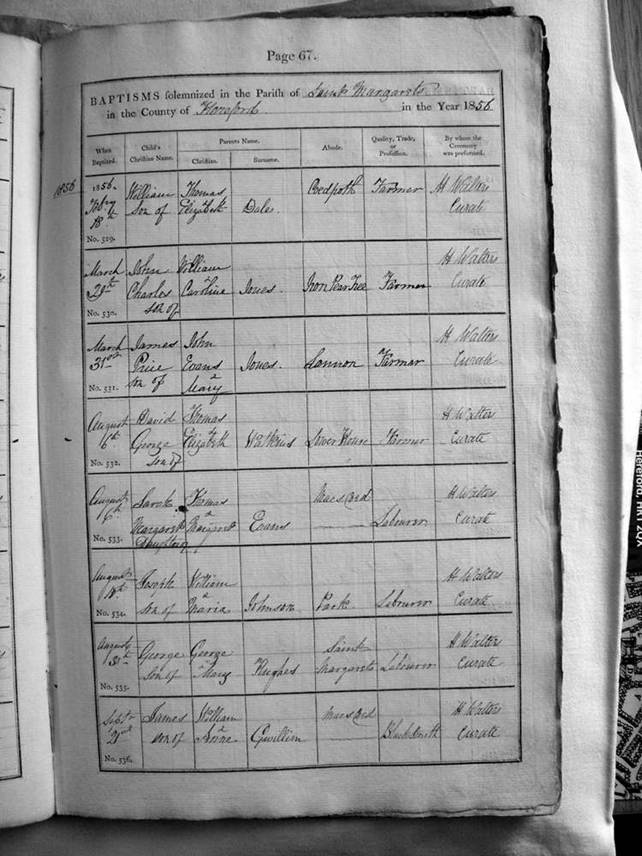 Page 67.
BAPTISMS solemnized in the Parish of Saint Margarets
in the County of Hereford in the Year 1856
When Baptized.
Child's Christian Name.
Parents Name.
Christian.
Surname.
Abode.
Quality, Trade, or Profession.
By whom the Ceremony was performed.
1856
1856.
Feby
18th
No. 529.
William
son of
Thomas
Elizabeth
Dales.
Farmer
H Walter
Curate
March
No. 530.
John
Charles
son of
William
&
Caroline
Jones.
Iron Pear Tree
Farmer
H Walter
Curate
March
31st
No. 531.
James
Price
son of
John
Evans
&
Mary
Jones.
Farmer
H Walter
Curate
August
6th
No. 532.
David
George
son of
Thomas
&
Elizabeth
Watkins
Lower House
Farmer
H Walter
Curate
August
6th
No. 533.
Sarah
Margaret
Daughter
Thomas
&
Margaret
Evans
Labourer
H Walter
Curate
August
No. 534.
Joseph
son of
William
&
Maria
Johnson
Park
Labourer
H Walter
Curate
August
31st
No. 535.
George
son of
George
&
Mary
Hughes
Saint
Margarets
Labourer
H Walter
Curate
Septr
21st
No. 536.
James
son of
William
&
Anne
Gwillim
Blacksmith
H Walter
Curate